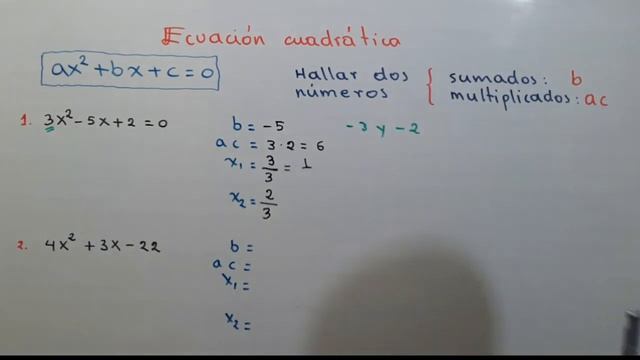 Ecuación cuadrática
ax² + bx + c = 0
Hallar dos números { sumados: b
multiplicados: ac
1. 3x² - 5x + 2 = 0
b = -5
-3 y -2
ac = 3 · 2 = 6
x₁ = 3/3 = 1
x₂ = 2/3
2. 4x² + 3x - 22
b =
ac =
x₁ =
x₂ =